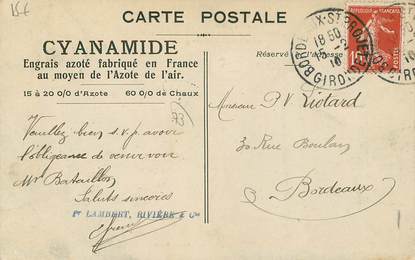 15€
CARTE POSTALE
CYANAMIDE
Engrais azoté fabriqué en France
au moyen de l'Azote de l'air.
15 à 20 0/0 d'Azote 60 0/0 de Chaux
73
Veuillez bien s.v.p. avoir
l'obligeance de venir voir
Mr Bataillon
Saluts sincères
Pr LAMBERT, RIVIÈRE & Cie
Réservé à l'adresse
BORDEAUX-ST PROJET
18 50
15-2
10
GIRONDE
Monsieur P V Liotard
30 Rue Boulan
Bordeaux